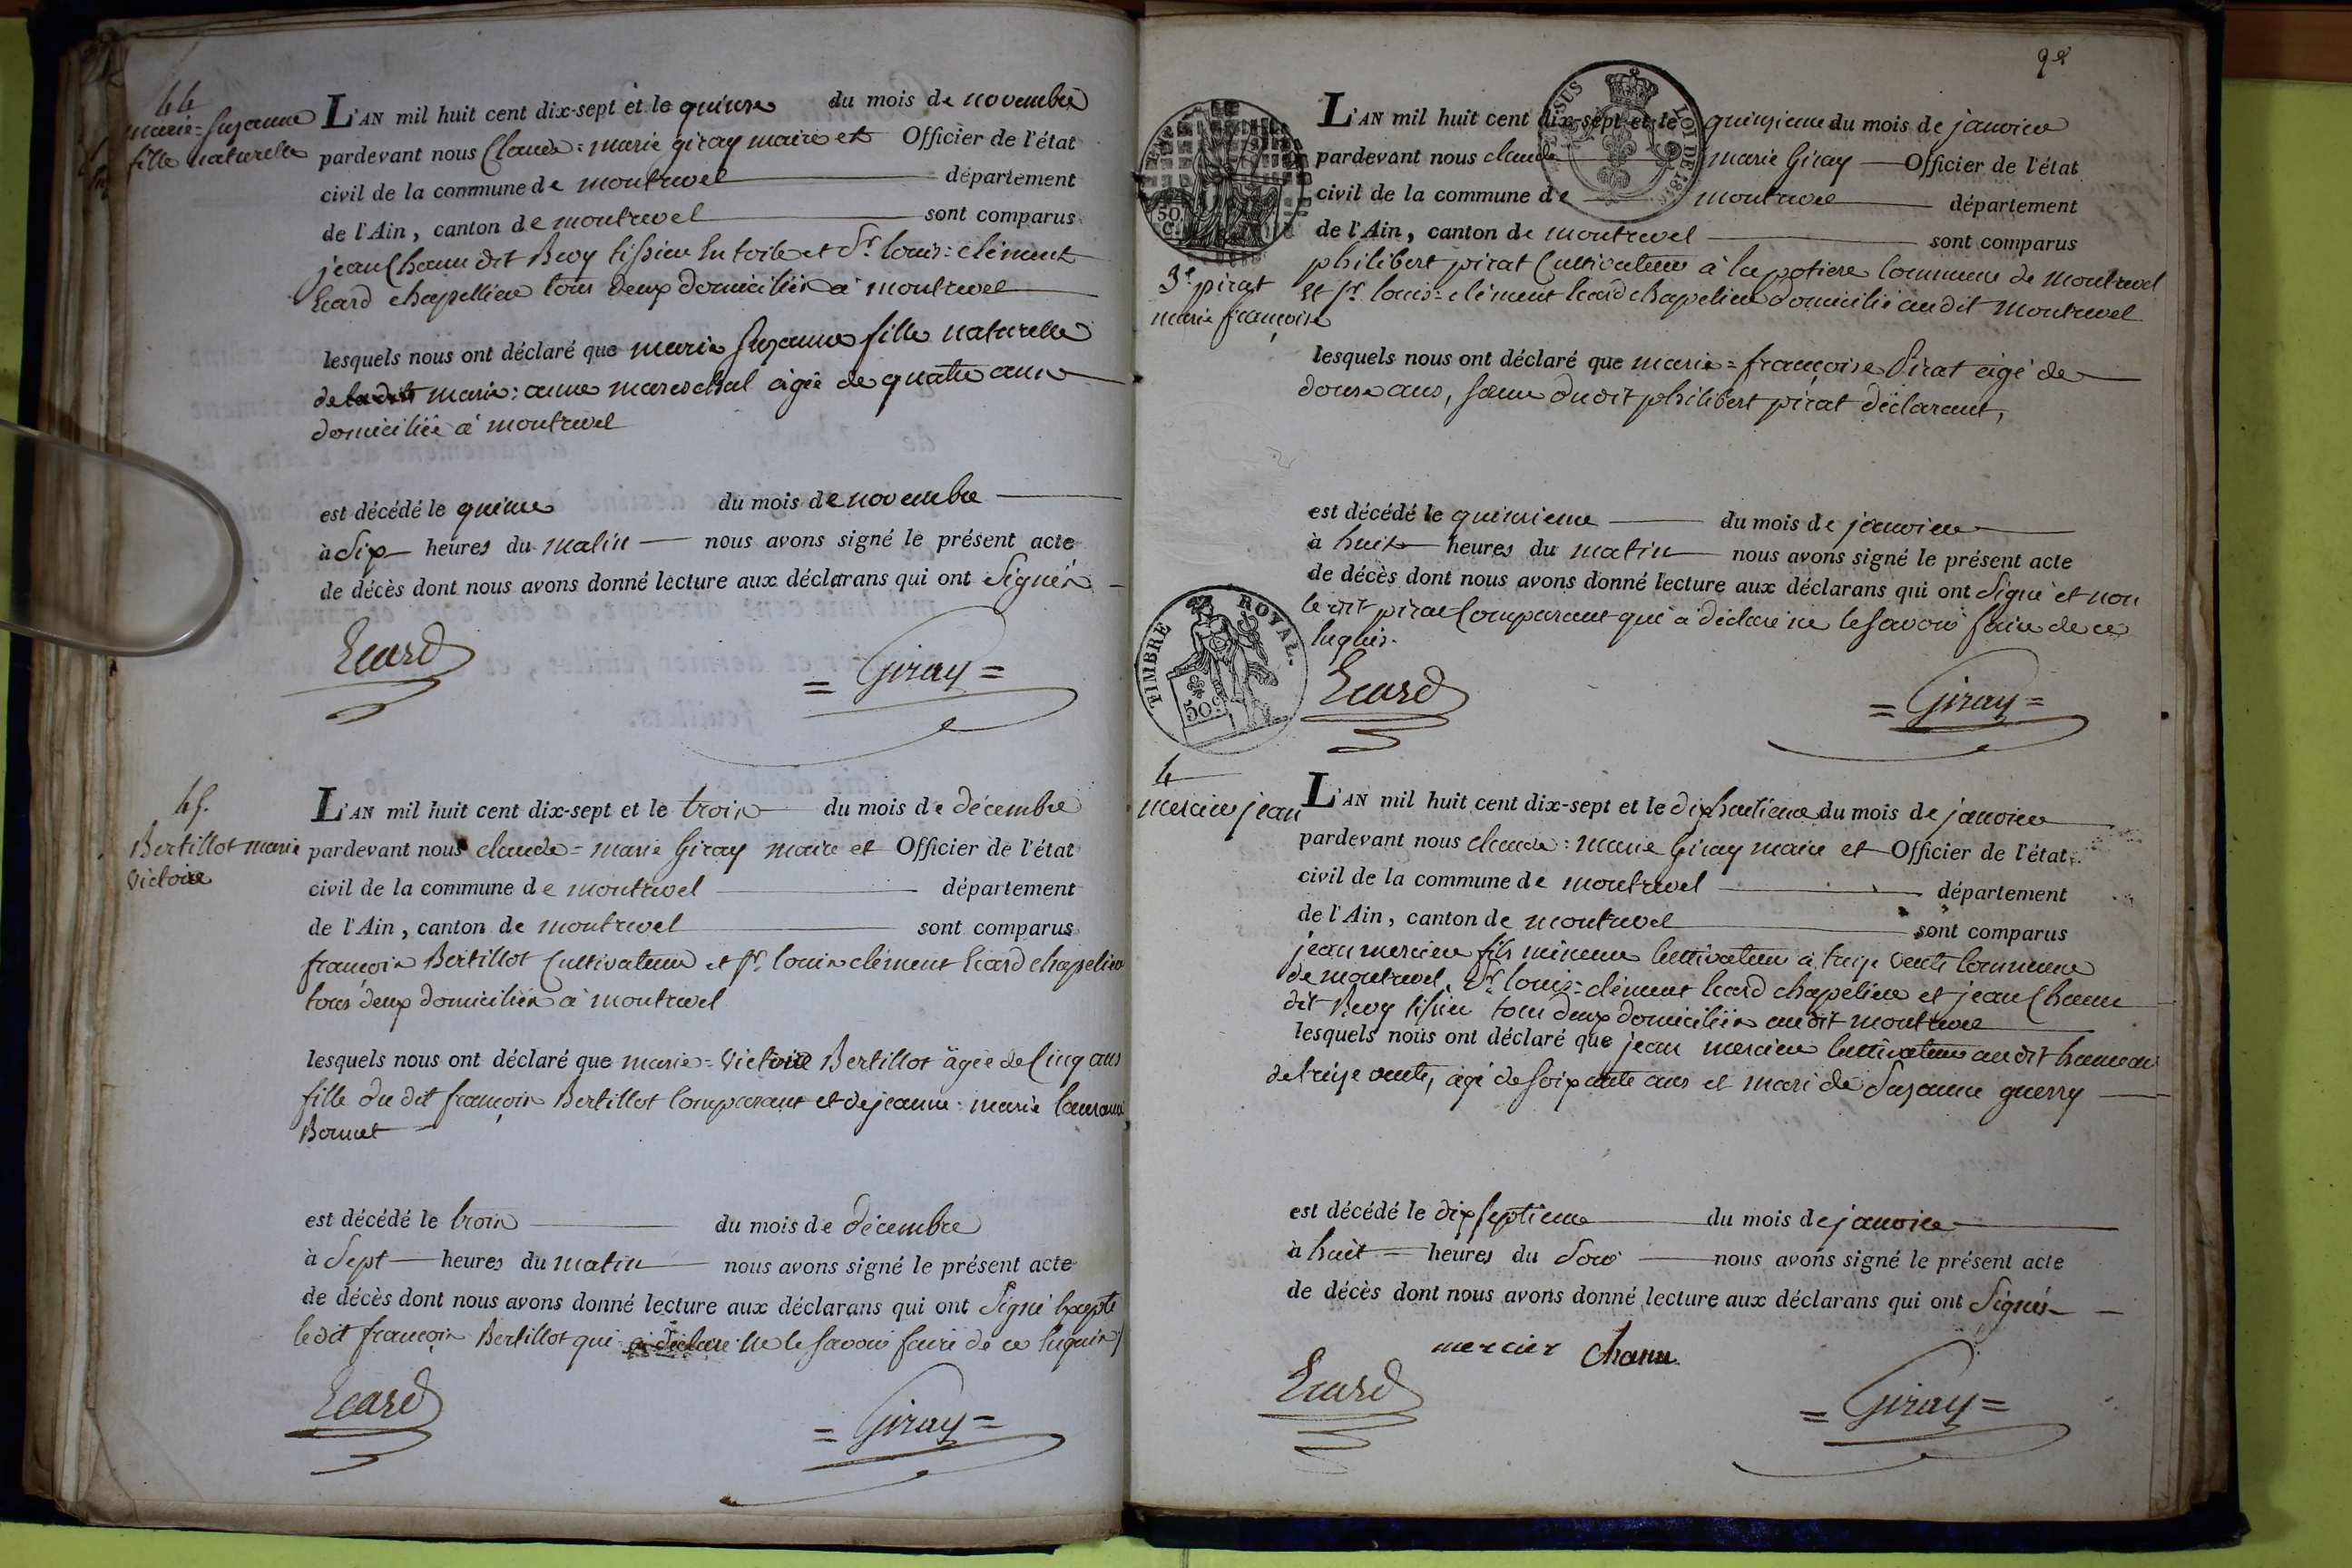 44
marie = Suzanne
fille naturelle
L'AN mil huit cent dix-sept et le quinze du mois de novembre
pardevant nous Claude = marie giray maire et Officier de l'état
civil de la commune de montrevel département
de l'Ain, canton de montrevel sont comparus
jean Chanu dit Bevy tissier en toile et Sr. louis = clément
Ecard chapellier tous deux domiciliés à montrevel
lesquels nous ont déclaré que marie Suzanne fille naturelle
de la dite marie = anne mareschal agée de quatre ans
domiciliée à montrevel
est décédé le quinze du mois de novembre
à Six heures du matin nous avons signé le présent acte
de décès dont nous avons donné lecture aux déclarans qui ont Signés
Ecard = Giray =
45.
Bertillot marie
victoire
L'AN mil huit cent dix-sept et le trois du mois de décembre
pardevant nous claude = marie Giray maire et Officier de l'état
civil de la commune de montrevel département
de l'Ain, canton de montrevel sont comparus
françois Bertillot Cultivateur et Sr. louis clément Ecard chapelier
tous deux domiciliés à montrevel
lesquels nous ont déclaré que marie = victoire Bertillot âgée de Cinq ans
fille du dit françois Bertillot Comparant et de jeanne = marie
est décédé le trois du mois de décembre
à Sept heures du matin nous avons signé le présent acte
de décès dont nous avons donné lecture aux déclarans qui ont Signé Excepté
le dit françois Bertillot qui a déclaré ne le savoir faire de ce Enquis
Ecard = Giray =
LOI DE 18
50
C.
3e. pirat
marie françoise
L'AN mil huit cent dix-sept et le quinzieme du mois de janvier
pardevant nous claude marie Giray Officier de l'état
civil de la commune de montrevel département
de l'Ain, canton de montrevel sont comparus
philibert pirat Cultivateur à la potiere Commune de montrevel
et Sr. louis = clément Ecard chapelier domicilié au dit montrevel
lesquels nous ont déclaré que marie = françoise Pirat agé de
douze ans, sœur du dit philibert pirat déclarant,
est décédé le quinzieme du mois de janvier
à huit heures du matin nous avons signé le présent acte
de décès dont nous avons donné lecture aux déclarans qui ont Signé et non
le dit pirat Comparant qui a déclaré ne le savoir faire de ce
Enquis.
TIMBRE ROYAL.
50c
Ecard = Giray =
4
mercier jean
L'AN mil huit cent dix-sept et le dixhuitieme du mois de janvier
pardevant nous claude = marie Giray maire et Officier de l'état
civil de la commune de montrevel département
de l'Ain, canton de montrevel sont comparus
jean mercier fils mineur Cultivateur à treize vents Commune
de montrevel, Sr. louis = clément Ecard chapelier et jean Chanu
dit Bevy tissier tous deux domiciliés au dit montrevel
lesquels nous ont déclaré que jean mercier Cultivateur au dit hameau
de treize vents, agé de soixante ans et mari de Suzanne guerry
est décédé le dixseptieme du mois de janvier
à huit heures du Soir nous avons signé le présent acte
de décès dont nous avons donné lecture aux déclarans qui ont Signés
mercier Chanu
Ecard = Giray =